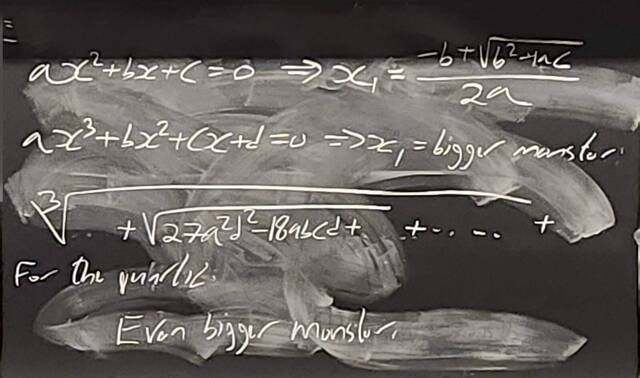 ax²+bx+c=0 ⇒ x₁ = (-b+√(b²-4ac))/2a
ax³+bx²+cx+d=0 ⇒ x₁ = bigger monstor.
∛( .. +√(27a²d²-18abcd+ ) +.. .. +
For the quartic.
Even bigger monstor.